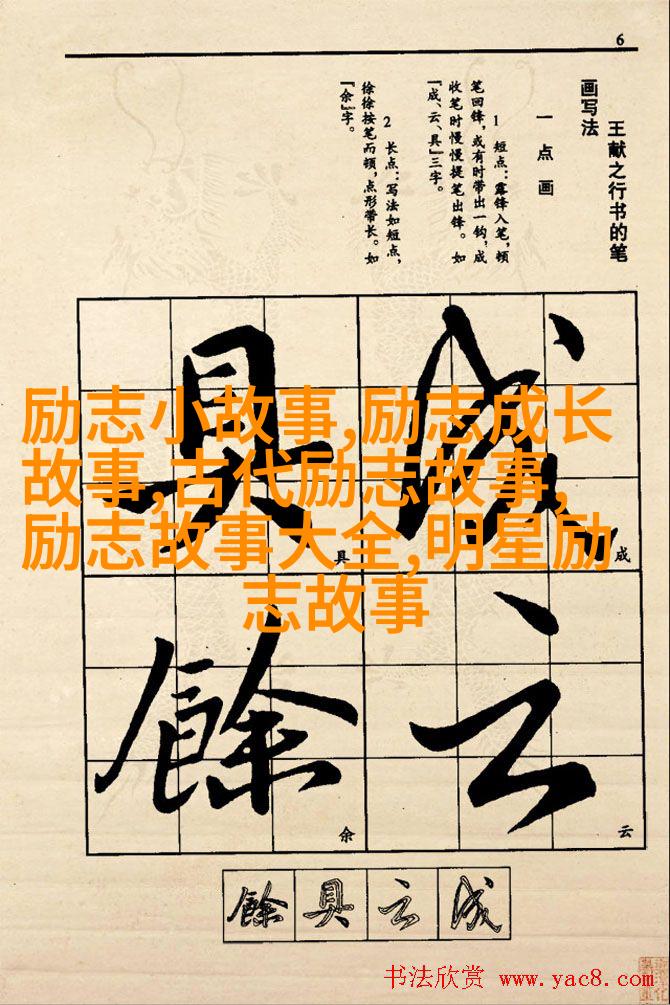 6
王献之行书的笔
画写法
一 点 画
1 短点：露锋入笔，顿
笔回锋，或有时带出一钩，成
收笔时慢慢提笔出锋。如
『成、云、具』三字。
2 长点：写法如短点，
徐徐按笔而顿，点形带长。如
『余』字。
励志小故事,励志成长
故事,古代励志故事,
励志故事大全,明星励
志故事
成
具
云
余
餘 具 云 成
书法欣赏 www.yac8.com